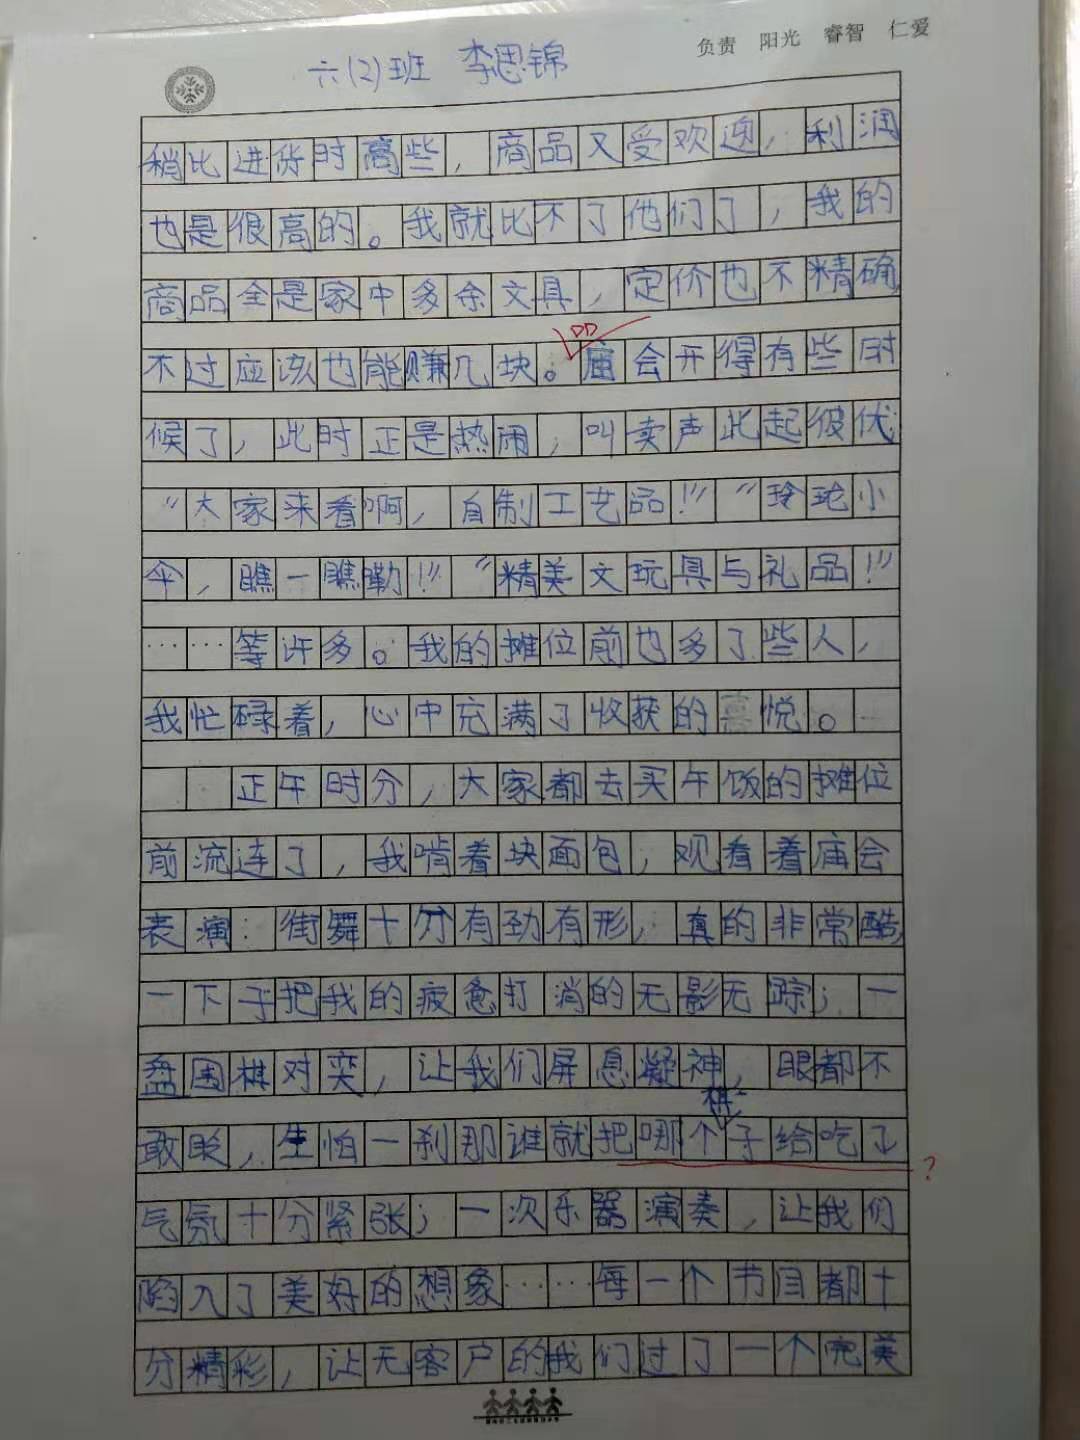 负责 阳光 睿智 仁爱
六(2)班 李思锦
稍比进货时高些，商品又受欢迎，利润
也是很高的。我就比不了他们了，我的
商品全是家中多余文具，定价也不精确
不过应该也能赚几块。庙会开得有些时
候了，此时正是热闹，叫卖声此起彼伏
“大家来看啊，自制工艺品！”“玲珑小
伞，瞧一瞧嘞！”“精美文玩具与礼品！”
……等许多。我的摊位前也多了些人，
我忙碌着，心中充满了收获的喜悦。
正午时分，大家都去买午饭的摊位
前流连了，我啃着块面包，观看着庙会
表演：街舞十分有劲有形，真的非常酷
一下子把我的疲惫打消的无影无踪；一
盘围棋对奕，让我们屏息凝神，眼都不
棋
敢眨，生怕一刹那谁就把哪个子给吃了
？
气氛十分紧张；一次乐器演奏，让我们
陷入了美好的想象……每一个节目都十
分精彩，让无客户的我们过了一个完美